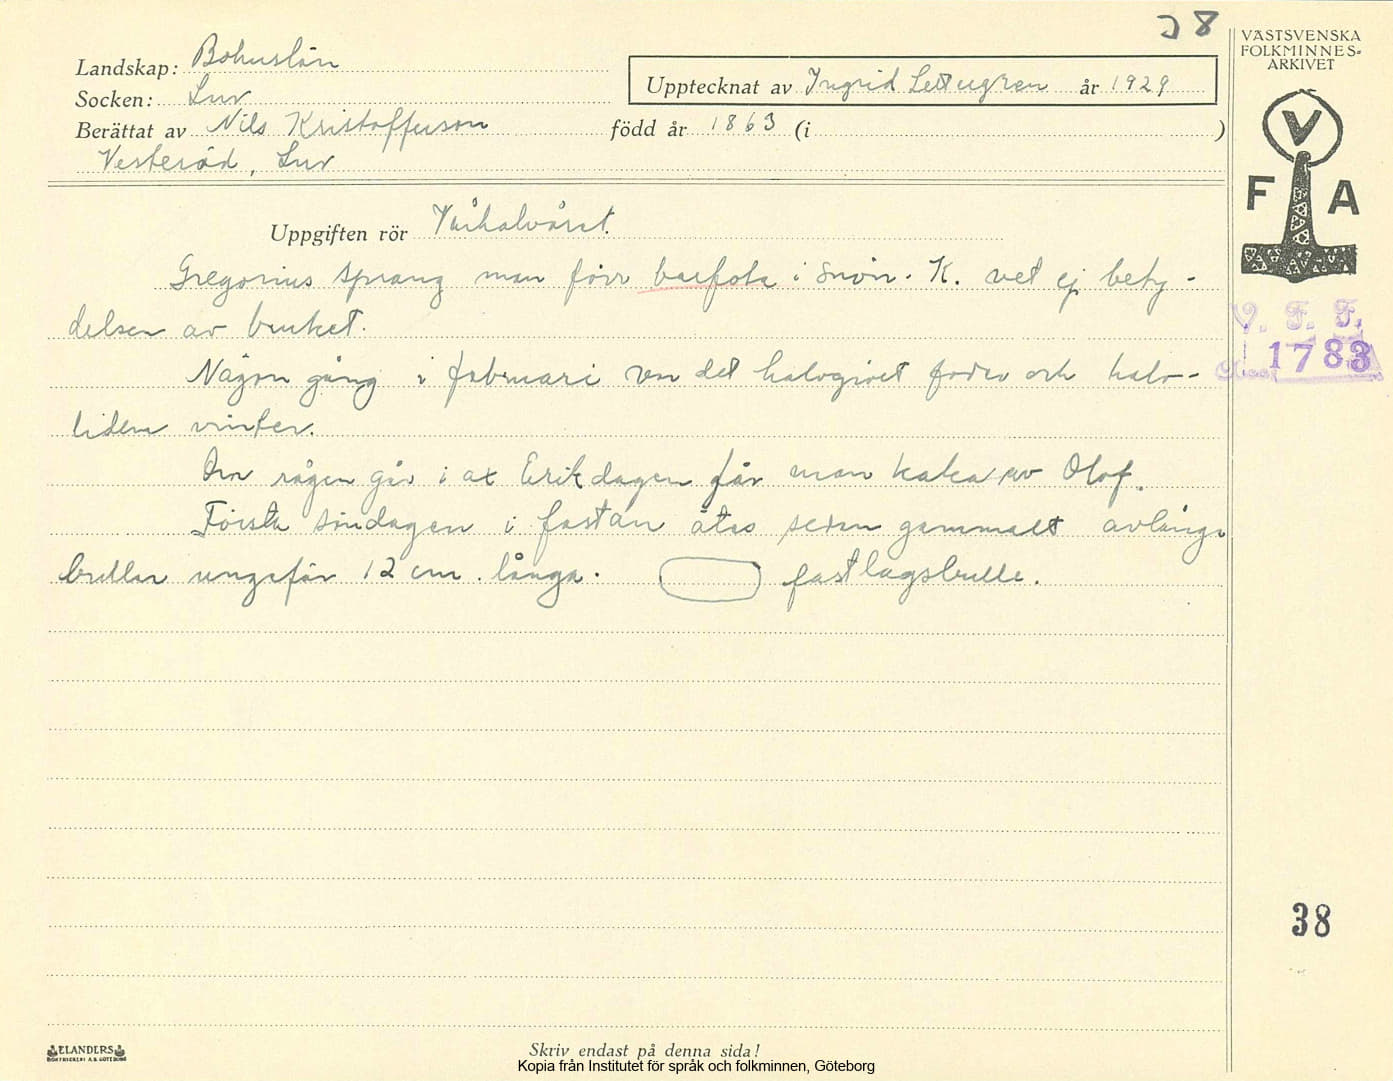 38
VÄSTSVENSKA
FOLKMINNES-
ARKIVET
Landskap: Bohuslän
Upptecknat av Ingrid år 1929
Socken: Lur
Berättat av Nils Kristofferson född år 1863 (i )
Vesteröd, Lur
V
F A
Uppgiften rör Vårhalvåret.
Gregorius sprang man förr barfota i snön. K. vet ej bety-
delsen av bruket.
V. F. F.
1783
Någon gång i februari var det halvgivet foder och halv-
liden vinter.
Om rågen går i ax Erikdagen får man kaka av Olof.
Första söndagen i fastan åtas sedan gammalt avlånga
bullar ungefär 12 cm. långa. fastlagsbulle.
38
ELANDERS
BOKTRYCKERI A.B. GÖTEBORG
Skriv endast på denna sida!
Kopia från Institutet för språk och folkminnen, Göteborg